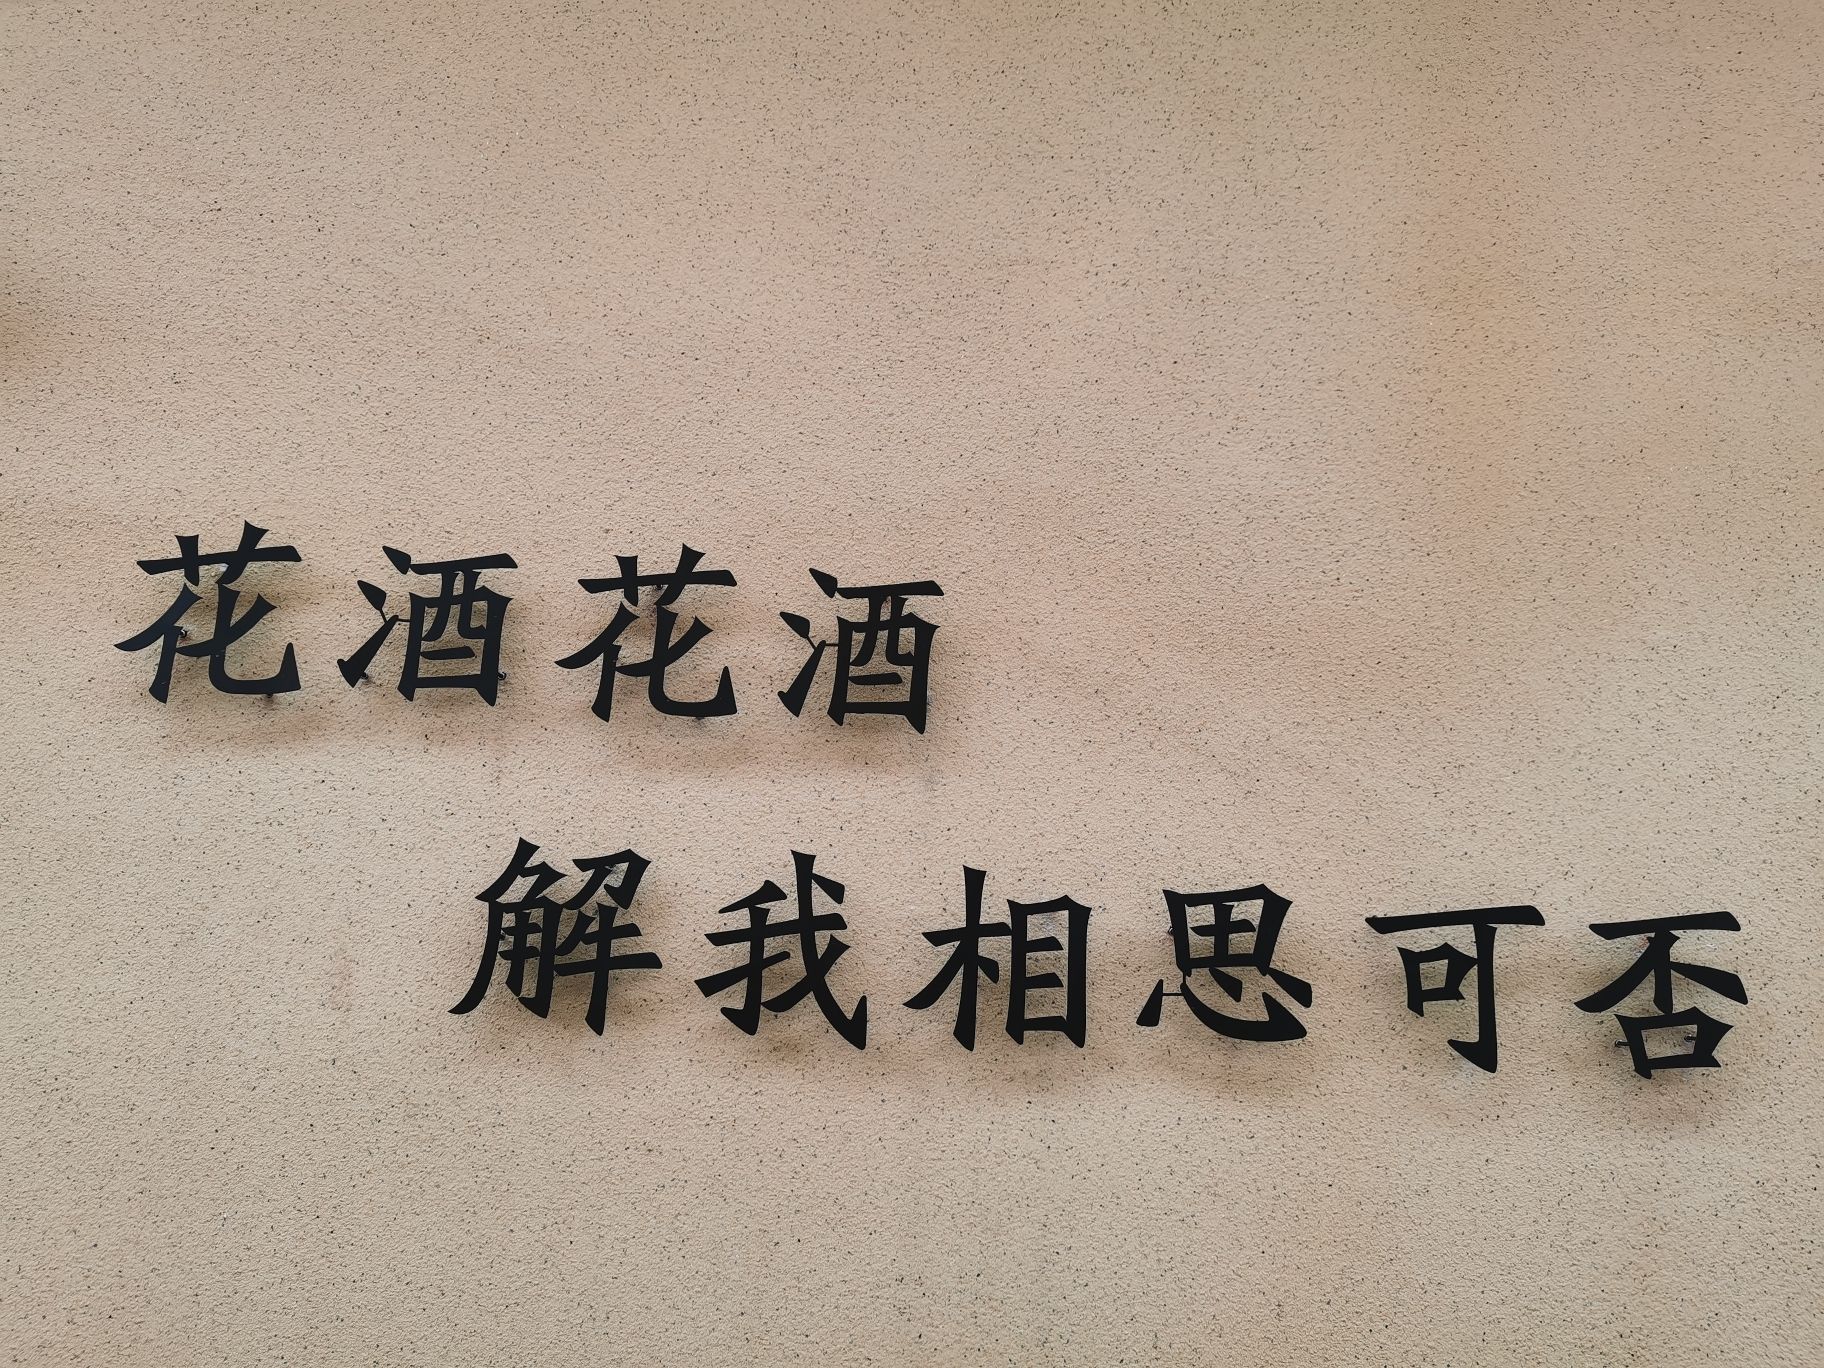 花酒花酒
解我相思可否